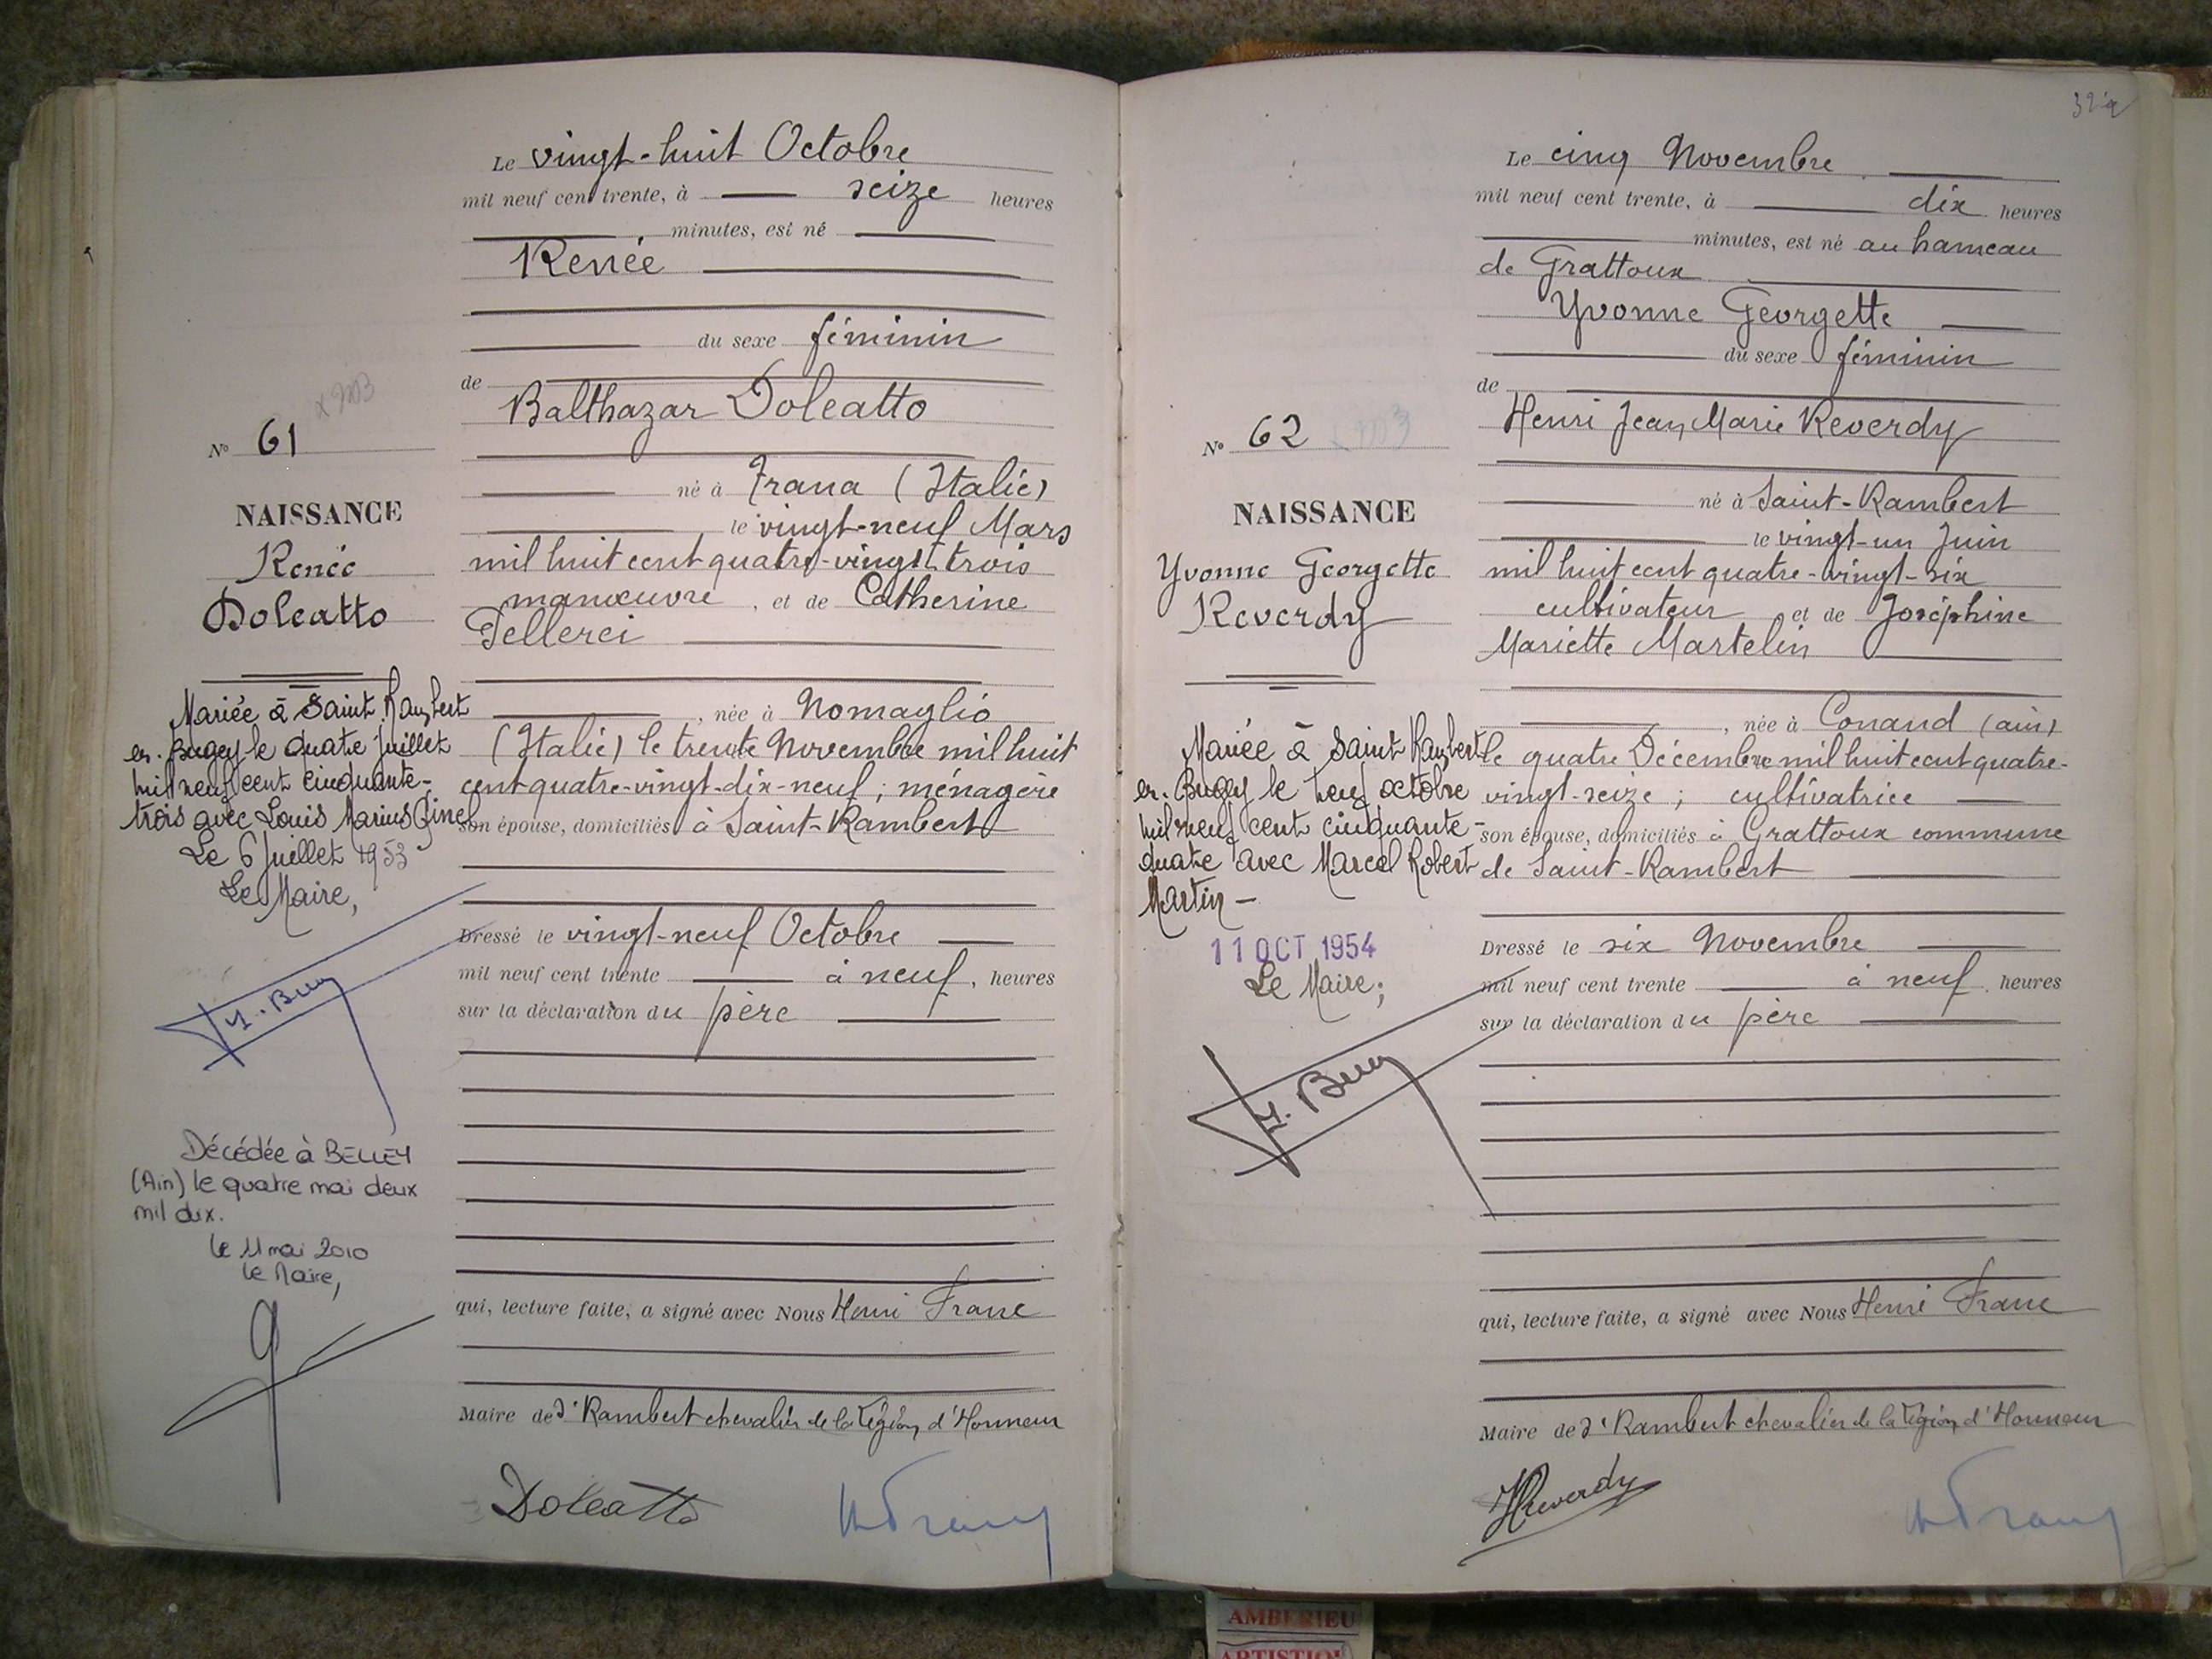 Le vingt-huit Octobre
mil neuf cent trente, à seize heures
minutes, est né
Renée
du sexe féminin
de
Balthazar Doleatto
N° 61
né à Trana (Italie)
NAISSANCE
le vingt-neuf Mars
Renée
mil huit cent quatre-vingt-trois
Doleatto
manœuvre, et de Catherine
Pellerei
Mariée à Saint Rambert
en Bugey le quatre juillet
mil neuf cent cinquante-
trois avec Louis Marius Ginel
Le 6 Juillet 1953
Le Maire,
, née à Nomaglio
(Italie) le trente Novembre mil huit
cent quatre-vingt-dix-neuf ; ménagère
son épouse, domiciliés à Saint-Rambert
Dressé le vingt-neuf Octobre
mil neuf cent trente à neuf, heures
sur la déclaration du père
Décédée à BELLEY
(Ain) le quatre mai deux
mil dix.
le 11 mai 2010
Le Maire,
qui, lecture faite, a signé avec Nous Henri Franc
Maire de St Rambert chevalier de la Légion d'Honneur
Doleatto
32
Le cinq Novembre
mil neuf cent trente, à dix heures
minutes, est né au hameau
de Grattoux
Yvonne Georgette
du sexe féminin
de
Henri Jean Marie Reverdy
N° 62
né à Saint-Rambert
NAISSANCE
le vingt-un Juin
Yvonne Georgette
Reverdy
mil huit cent quatre-vingt-six
cultivateur et de Joséphine
Mariette Martelin
Mariée à Saint Rambert
en Bugey le neuf octobre
mil neuf cent cinquante-
quatre avec Marcel Robert
Martin -
11 OCT 1954
Le Maire;
, née à Conand (ain)
le quatre Décembre mil huit cent quatre-
vingt-seize ; cultivatrice
son épouse, domiciliés à Grattoux commune
de Saint-Rambert
Dressé le six Novembre
mil neuf cent trente à neuf, heures
sur la déclaration du père
qui, lecture faite, a signé avec Nous Henri Franc
Maire de St Rambert chevalier de la Légion d'Honneur
HReverdy
AMBERIEU